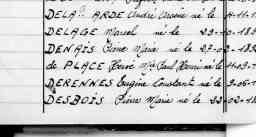 DELA ARDE André Arsène né le 11-11-1
DELAGE Marcel né le 23-10-189
DENAIS Pierre Marie né le 27-02-189
de PLACE Hervé Mie Paul Henri né le 11-03-1
DERENNES Eugène Constant né le 3-06-1
DESBOIS Pierre Marie né le -02-18